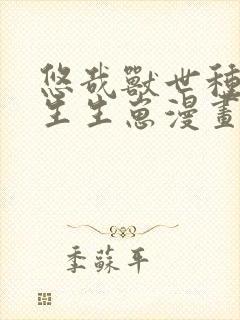 悠哉獸世種
生生崽漫畫
季蘇平